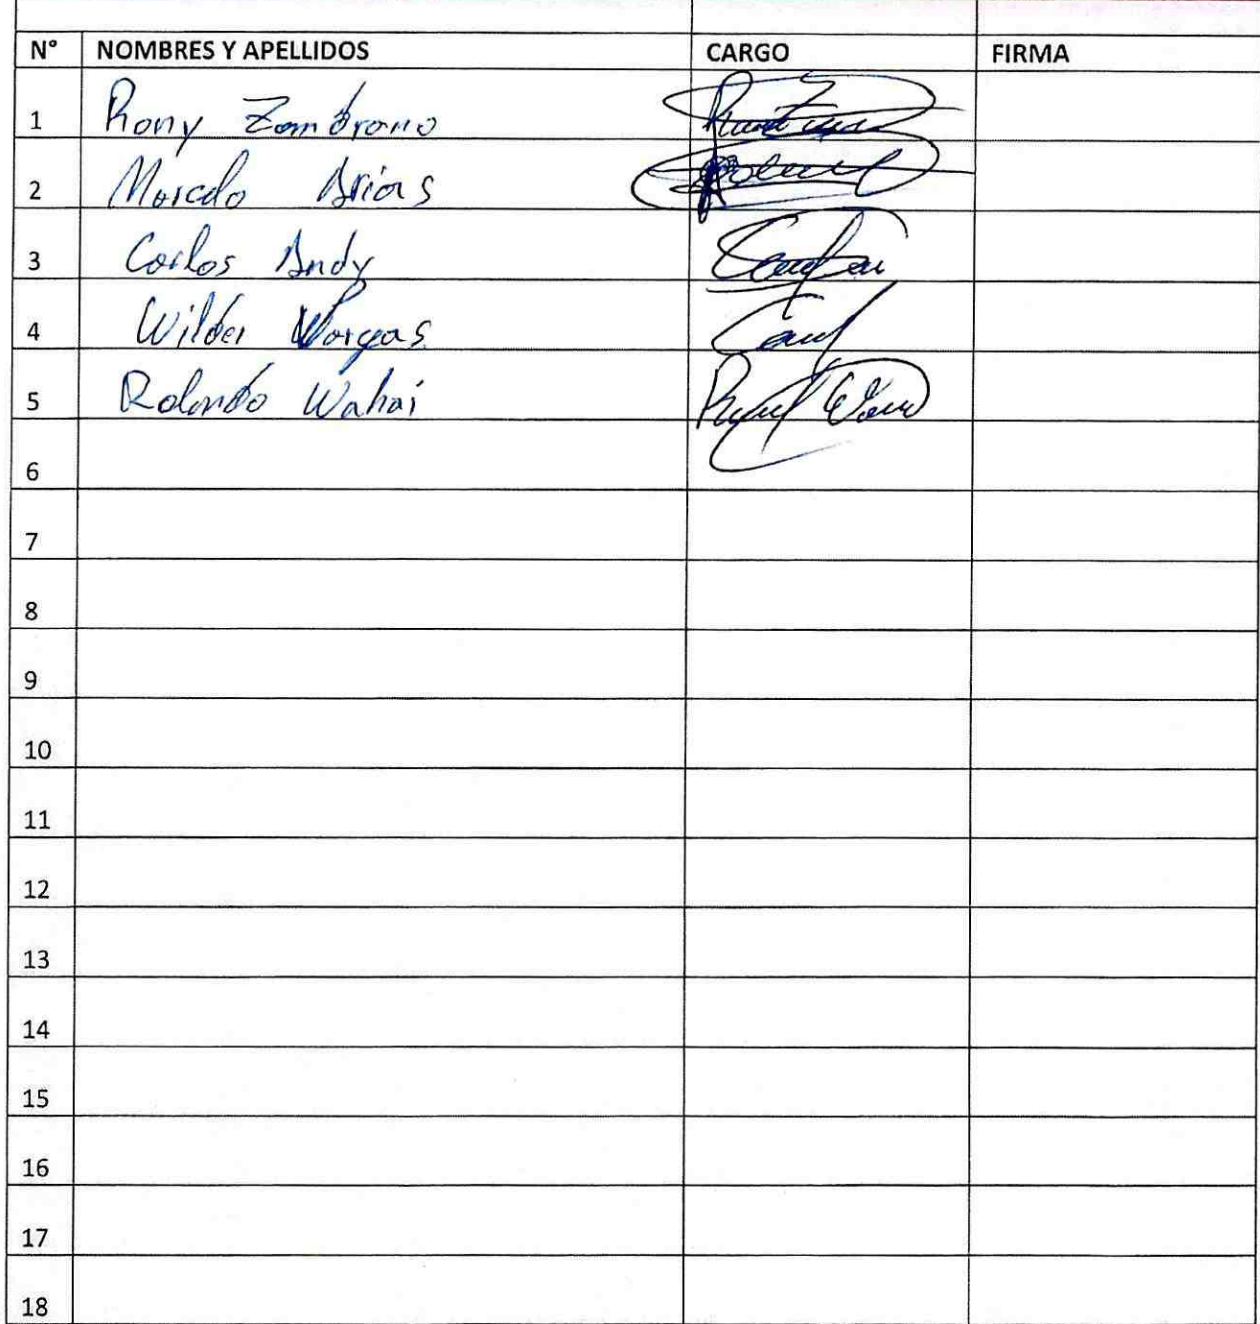 N° NOMBRES Y APELLIDOS CARGO FIRMA
1 Rony Zambrano
2 Marcelo Arias
3 Carlos Andy
4 Wilder Vargas
5 Rolando Wahai
6
7
8
9
10
11
12
13
14
15
16
17
18